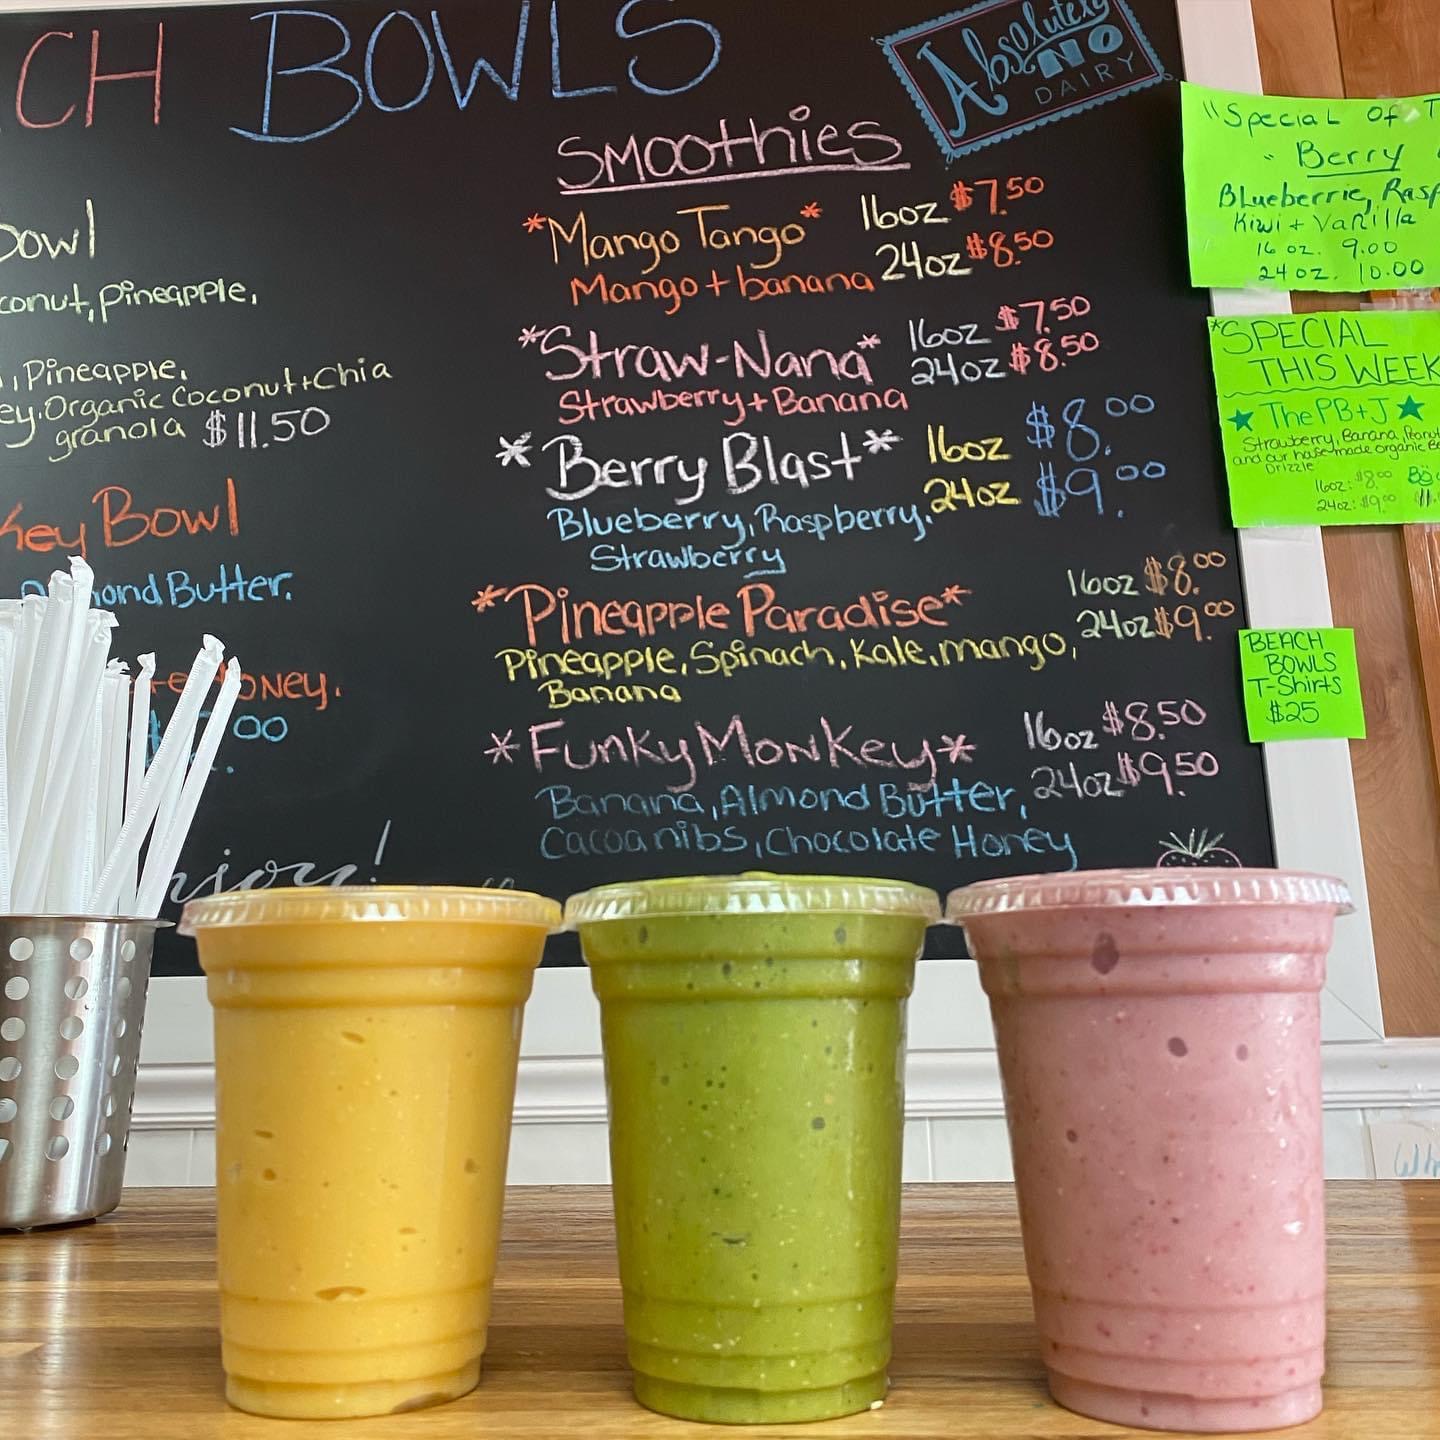 CH BOWLS
Absolutely
NO
DAIRY
Bowl
conut, pineapple,
, Pineapple,
ey, Organic Coconut + Chia
granola $11.50
Key Bowl
Almond Butter,
Honey.
00
Enjoy!
Smoothies
*Mango Tango* 16oz $7.50
24oz $8.50
Mango + banana
*Straw-Nana* 16oz $7.50
24oz $8.50
Strawberry + Banana
*Berry Blast* 16oz $8.00
24oz $9.00
Blueberry, Raspberry,
Strawberry
*Pineapple Paradise* 16oz $8.00
24oz $9.00
Pineapple, Spinach, Kale, mango,
Banana
*Funky Monkey* 16oz $8.50
24oz $9.50
Banana, Almond Butter,
Cacoa nibs, Chocolate Honey
"Special of T
"Berry
Blueberrie, Rasp
Kiwi + Vanilla
16 oz. 9.00
24 oz. 10.00
*SPECIAL
THIS WEEK
★ The PB+J ★
Strawberry, Banana, Peanut
and our housemade organic Be
Drizzle
16oz: $8.00
24oz: $9.00
BEACH
BOWLS
T-Shirts
$25